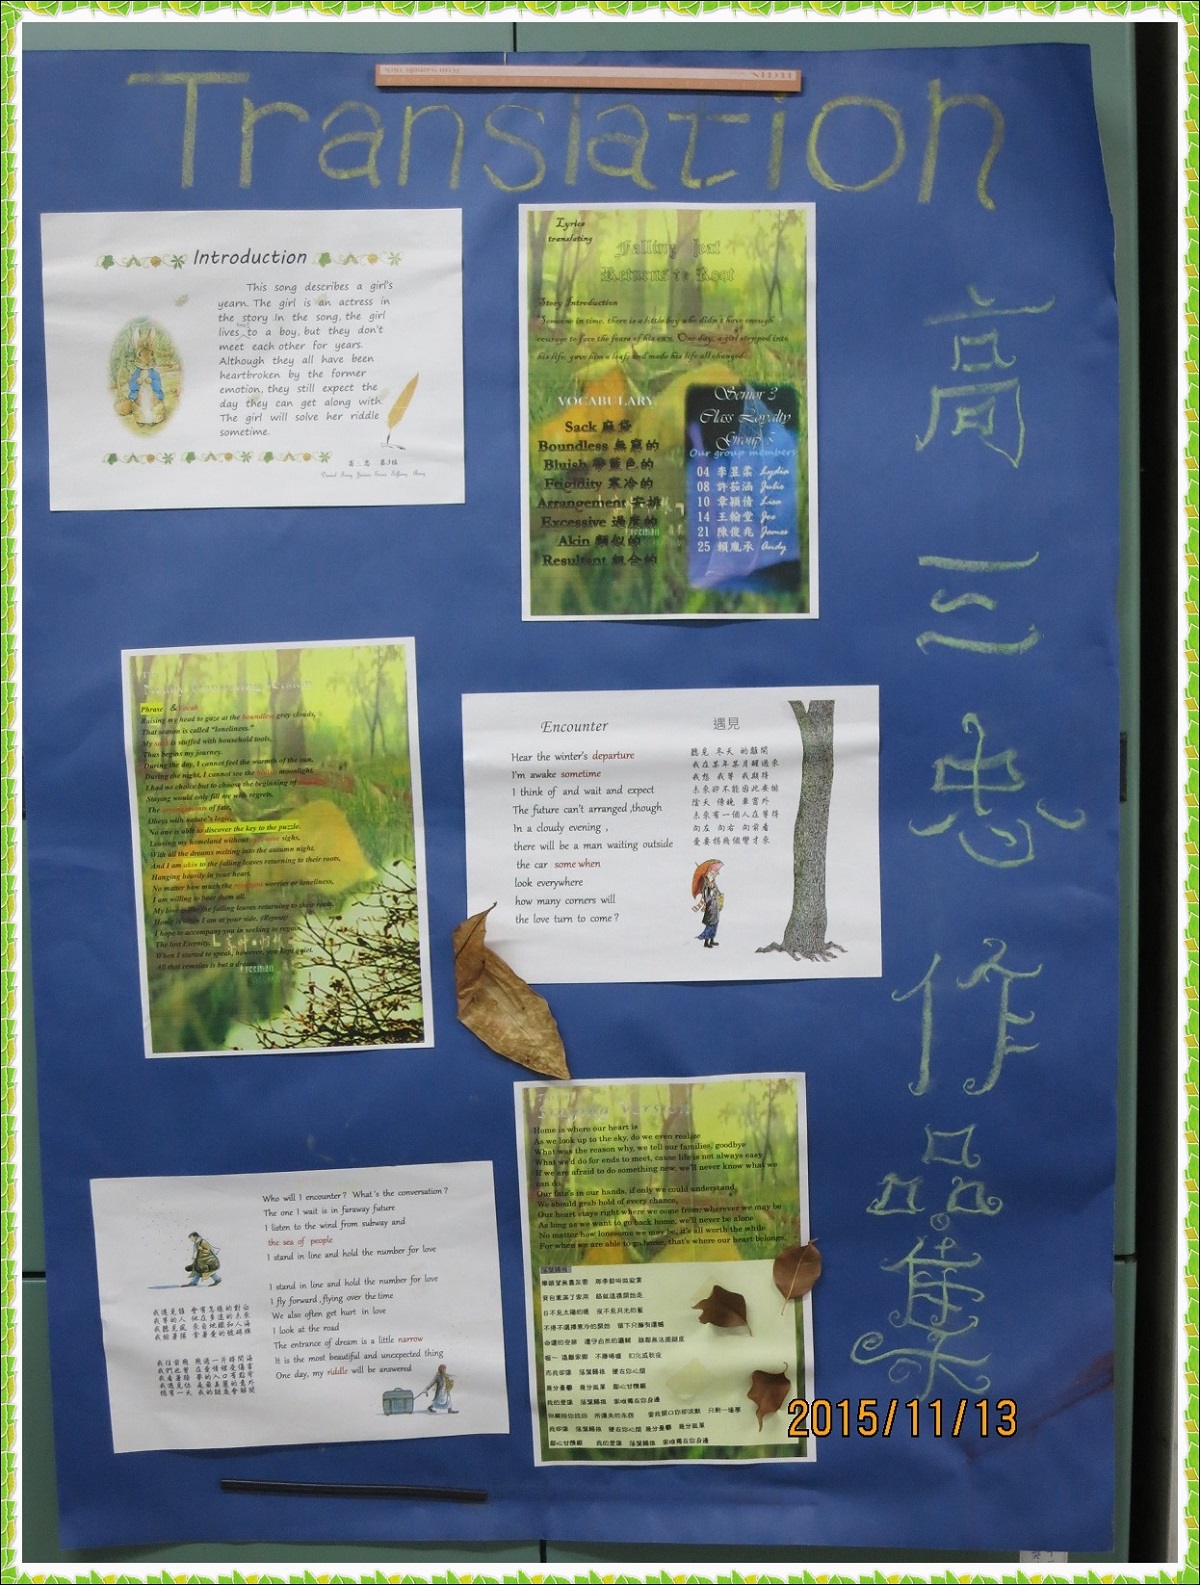 Translation
高三忠作品集
Introduction
This song describes a girl's
yearn. The girl is an actress in
the story. In the song, the girl
lives to a boy, but they don't
meet each other for years.
Although they all have been
heartbroken by the former
emotion, they still expect the
day they can get along with.
The girl will solve her riddle
sometime.
Lyrics
translating
Falling leaf
Returns to Root
Story Introduction
Someone in time, there is a little boy who didn't have enough
courage to face the fears of his own. One day, a girl stepped into
his life, gave him a leaf, and made his life all changed.
VOCABULARY
Sack 麻袋
Boundless 無窮的
Bluish 帶藍色的
Frigidity 寒冷的
Arrangement 安排
Excessive 過度的
Akin 類似的
Resultant 組合的
Senior 3
Class Loyalty
Group
Our group members
04 李昱柔 Lydia
08 許茹涵 Julie
10 韋穎倩 Lisa
14 王翰堂 Joe
21 陳俊兆 James
25 賴胤承 Andy
Phrase & Vocab
Raising my head to gaze at the boundless grey clouds,
That season is called "loneliness."
My sack is stuffed with household tools,
Thus begins my journey.
During the day, I cannot feel the warmth of the sun,
During the night, I cannot see the bluish moonlight.
I had no choice but to choose the beginning of
Staying would only fill me with regrets.
The arrangements of fate,
Obeys with nature's logic,
No one is able to discover the key to the puzzle.
Leaving my homeland without excessive sighs,
With all the dreams melting into the autumn night.
And I am akin to the falling leaves returning to their roots,
Hanging heavily in your heart.
No matter how much the resultant worries or loneliness,
I am willing to bear them all.
My love is like the falling leaves returning to their roots,
Home is when I am at your side. (Repeat)
I hope to accompany you in seeking to regain
The lost Eternity.
When I started to speak, however, you kept quiet.
All that remains is but a dream.
Freeman
Encounter
遇見
Hear the winter's departure
I'm awake sometime
I think of and wait and expect
The future can't arranged ,though
In a cloudy evening ,
there will be a man waiting outside
the car some when
look everywhere
how many corners will
the love turn to come?
聽見 冬天 的離開
我在某年某月醒過來
我想 我等 我期待
未來卻不能因此安排
陰天 傍晚 車窗外
未來有一個人在等待
向左 向右 向前看
愛要拐幾個彎才來
Who will I encounter? What's the conversation?
The one I wait is in faraway future
I listen to the wind from subway and
the sea of people
I stand in line and hold the number for love
I stand in line and hold the number for love
I fly forward ,flying over the time
We also often get hurt in love
I look at the road
The entrance of dream is a little narrow
It is the most beautiful and unexpected thing
One day, my riddle will be answered
我遇見誰 會有怎樣的對白
我等的人 他在多遠的未來
我聽見風 來自地鐵和人海
我排著隊 拿著愛的號碼牌
我往前飛 飛過一片時間海
我們也常 在愛情裡受傷害
我看著路 夢的入口有點窄
我遇見你 是最美麗的意外
總有一天 我的謎底會解開
Singing Version
Home is where our heart is
As we look up to the sky, do we even realize
What was the reason why, we tell our families, goodbye
What we'd do for ends to meet, cause life is not always easy
If we are afraid to do something new, we'll never know what we
can do.
Our fate's in our hands, if only we could understand,
We should grab hold of every chance,
Our heart stays right where we come from, wherever we may be
As long as we want to go back home, we'll never be alone
No matter how lonesome we may be, it's all worth the while
For when we are able to go home, that's where our heart belongs.
落葉歸根
舉頭望無盡灰雲 那季節叫做寂寞
背包塞滿了家用 路就這樣開始走
日不見太陽的暖 夜不見月光的藍
不得不選擇寒冷的開始 留下只擁有遺憾
命運的安排 遵守自然的邏輯 誰都無法揭謎底
喔~ 遠離家鄉 不勝唏噓 幻化成秋夜
而我卻像 落葉歸根 墜在你心間
幾分憂鬱 幾分孤單 都心甘情願
我的愛像 落葉歸根 家唯獨在你身邊
但願陪你找回 所遺失的永恆 當我開口你卻沉默 只剩一場夢
我卻像 落葉歸根 墜在你心間 幾分憂鬱 幾分孤單
都心甘情願 我的愛像 落葉歸根 家唯獨在你身邊
2015/11/13